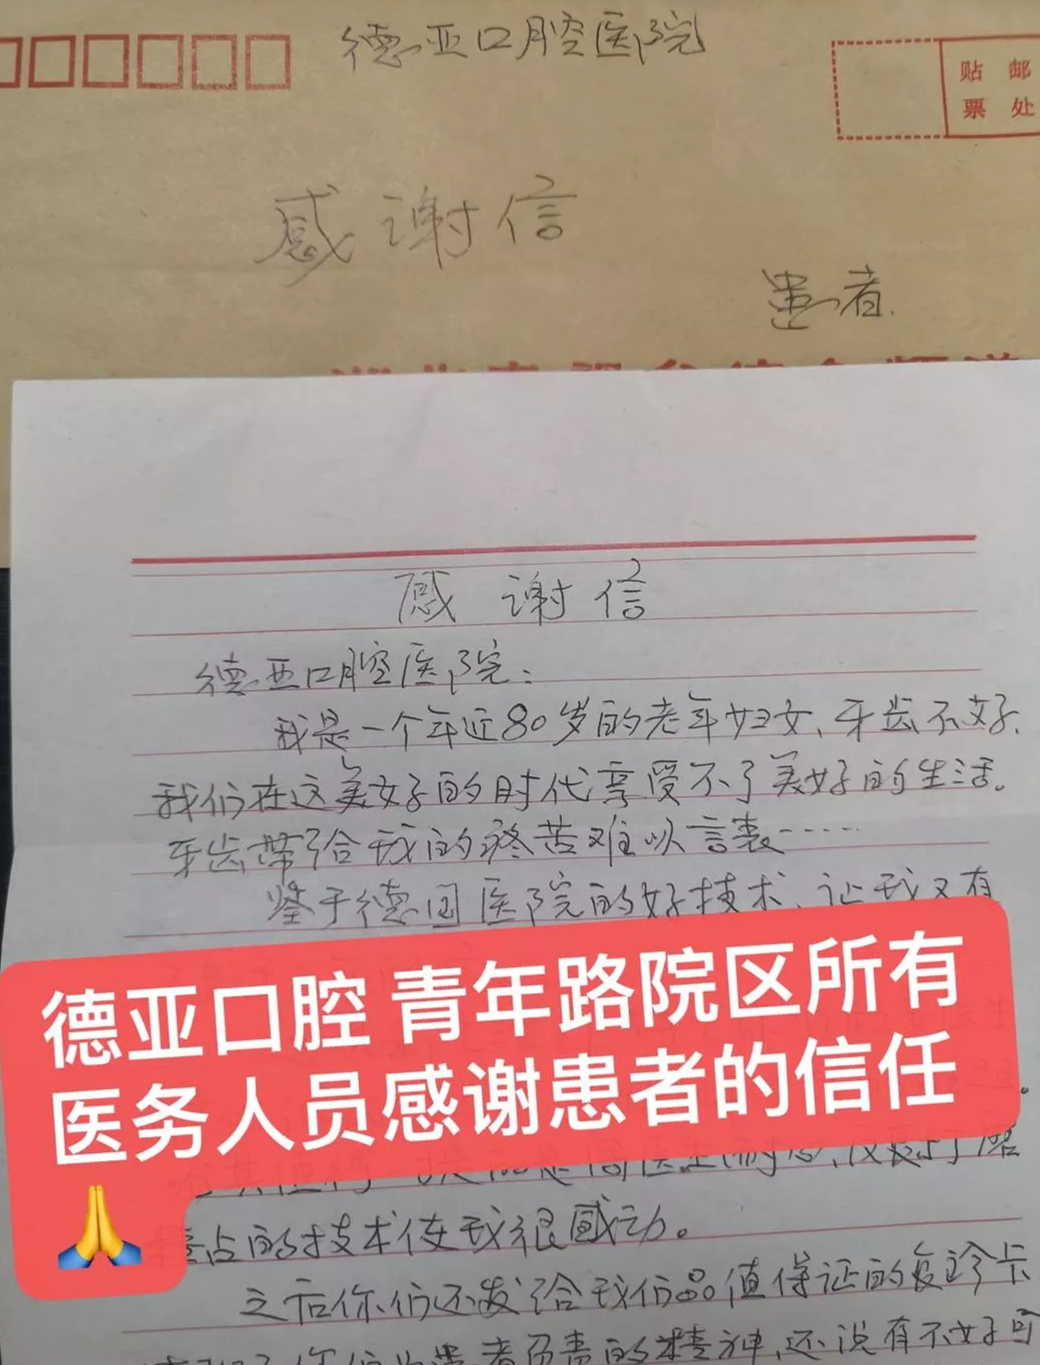 德亚口腔医院
贴 邮
票 处
感谢信
患者
感谢信
德亚口腔医院：
我是一个年近80岁的老年妇女、牙齿不好、
我们在这美好的时代享受不了美好的生活。
牙齿带给我的疼苦难以言表……
鉴于德国医院的好技术、让我又有
德亚口腔 青年路院区所有
医务人员感谢患者的信任
🙏
的技术使我很感动。
之后你们还发给我们品值保证的复诊卡
患者负责的精神,还说有不好可